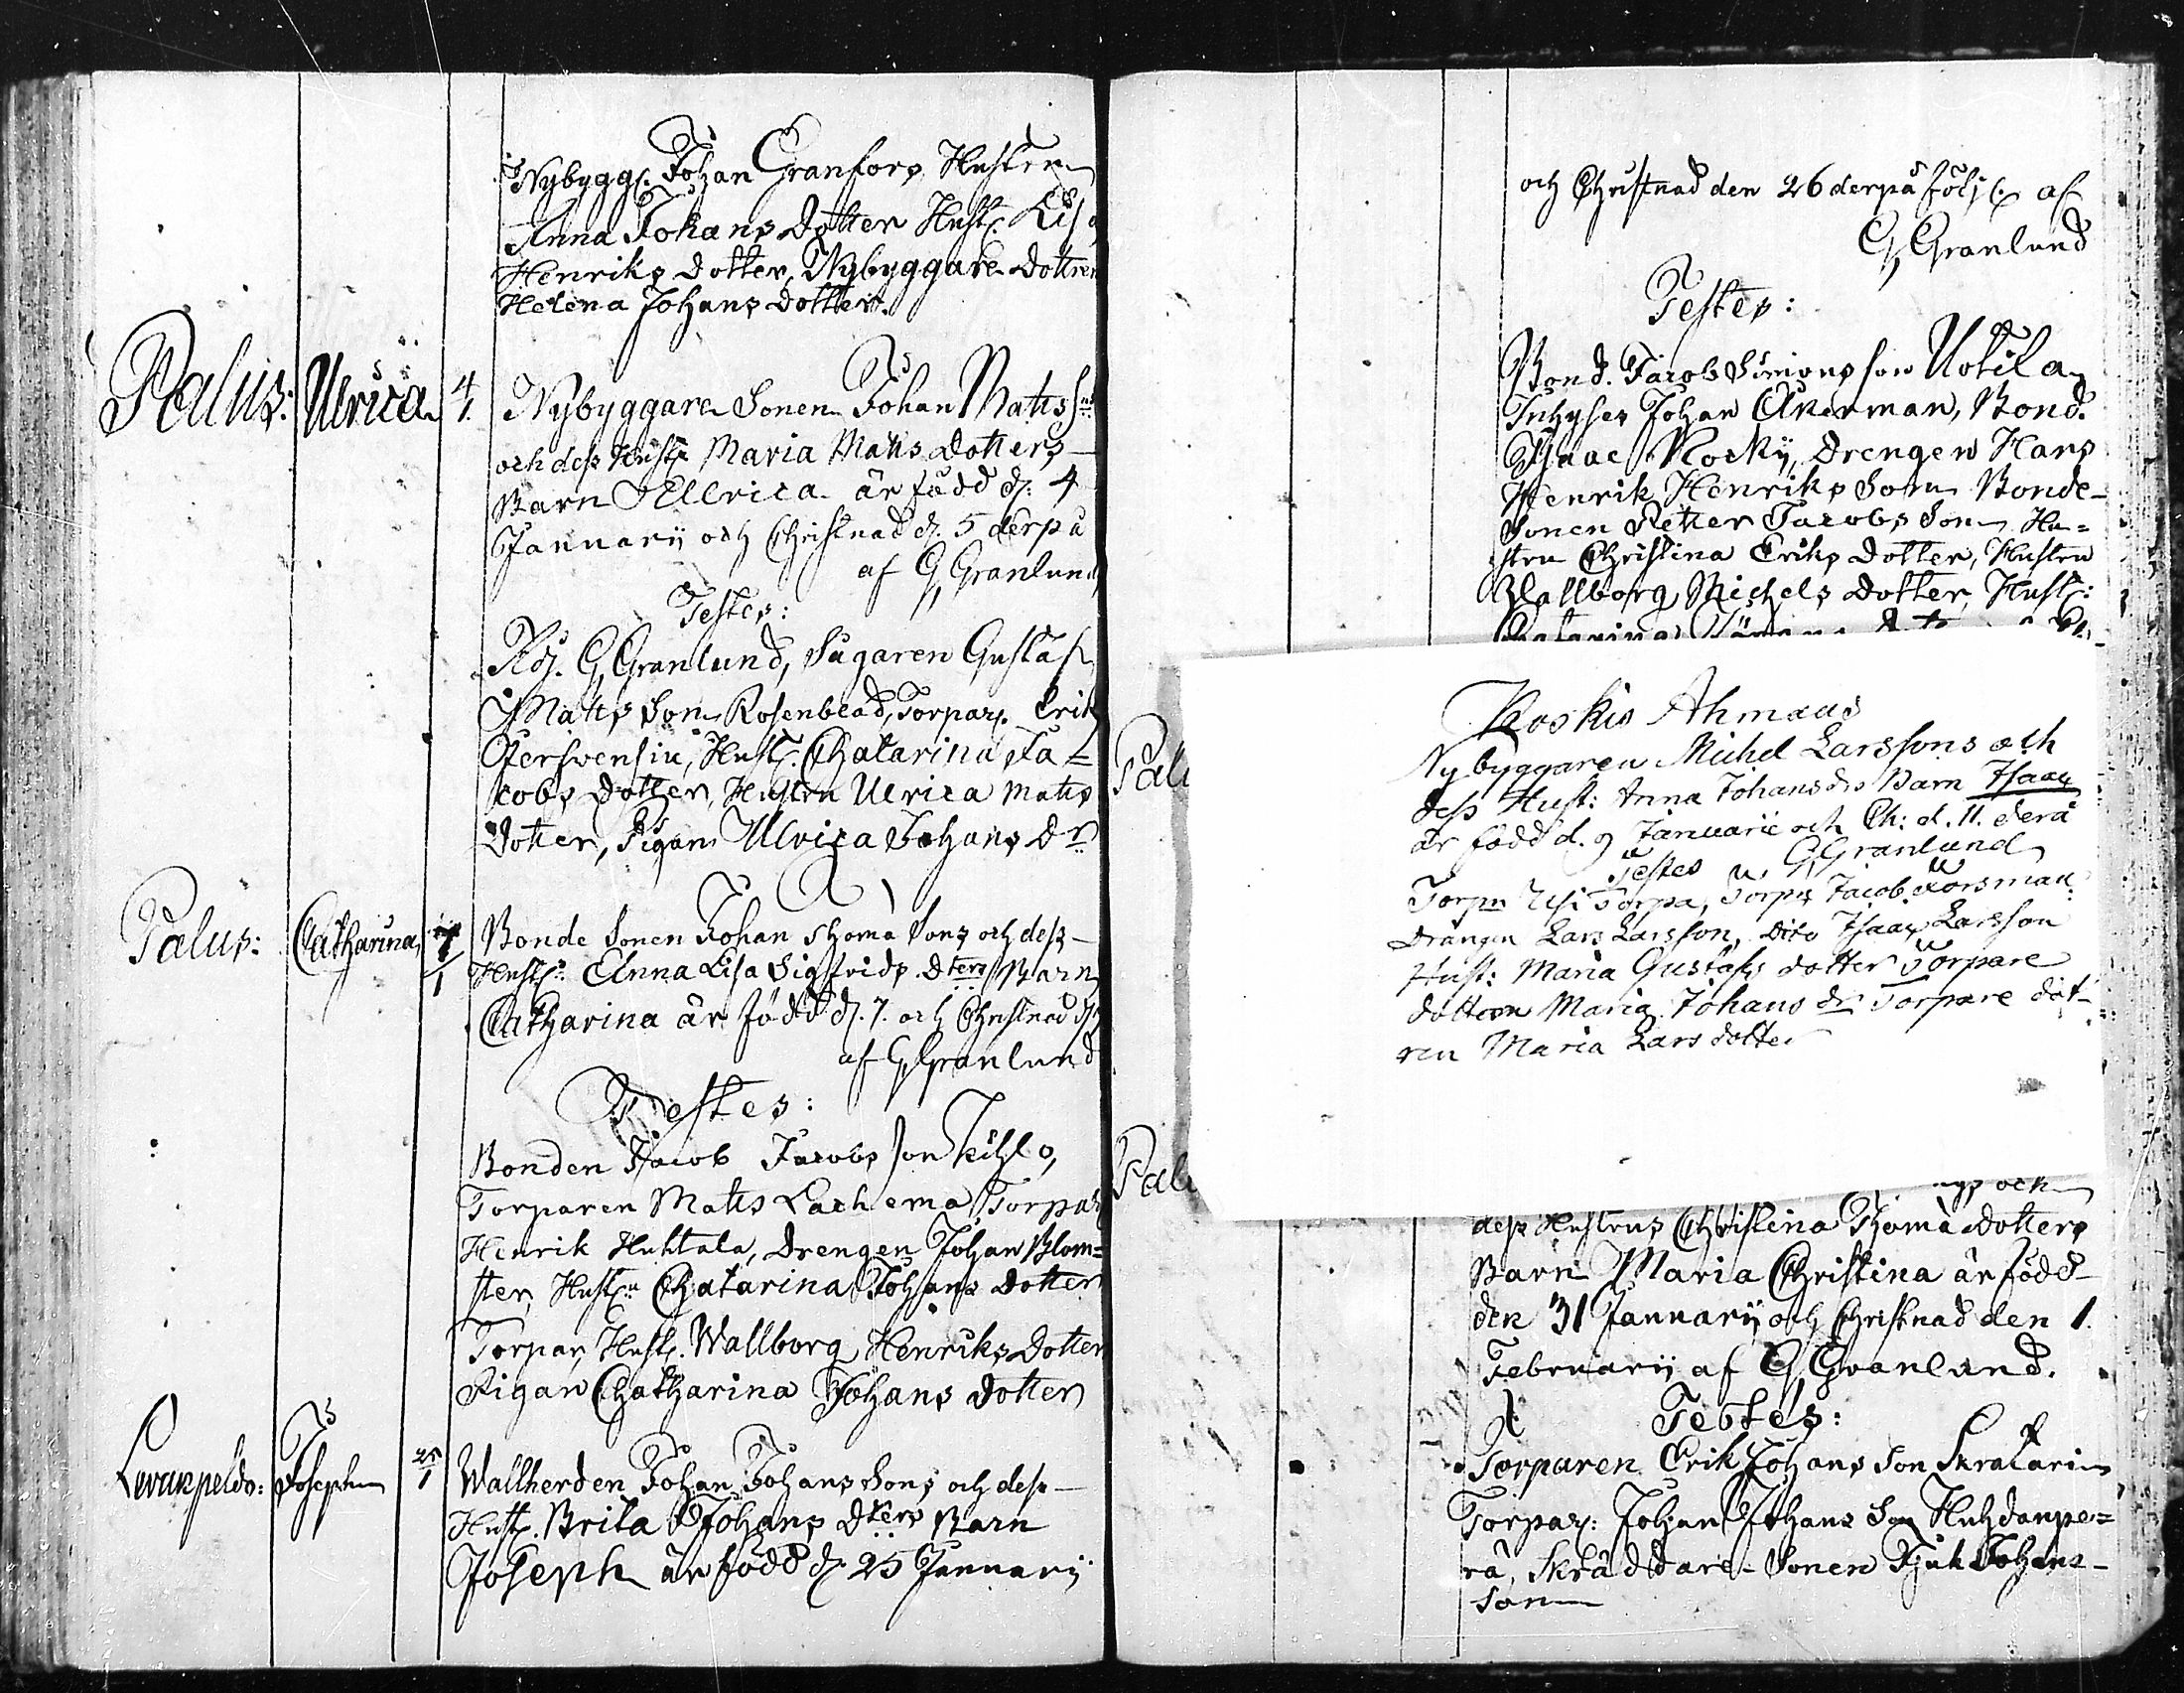 Nybygg. Johan Granfors Hustrun
Anna Johans Dotter Hust. Lisa
Henriks Dotter, Nybyggare Dottren
Helena Johans Dotter.
Palus: Ulrica 4/1. Nybyggare Sonen Johan Mats Sns
och dess Hustr Maria Mats Dotters
Barn Ullrica är född d: 4
Januarij och Christnad d. 5 derpå
af G Granlund
Testes:
Adj. G Granlund, Sågaren Gustaf
Matts Son Rosenblad, Torpar. Erik
Hust. Chatarina Ja=
cobs Dotter, Hustru Ulrica Mats
Dotter, Pigan Ulrica Johans Dr
Palus: Catharina, 7/1 Bonde Sonen Johan Thoma Sons och dess
Hustr: Anna Lisa Sigfrids Dters Barn
Catharina är född d. 7. och Christnad d
af G Granlund
Testes:
Bonden Jacob Jacobs son
Torparen Mats Lachema Torpar
Henrik Huhtala, Drengen Johan Blom=
ster, Hustr Chatarina Johans Dotter
Torpar, Hust. Wallborg Henriks Dotter
Pigan Chatharina Johans Dotter
Levanpeldo: Joseph 25/1 Wallherden Johan Johans Sons och dess
Hust. Brita Johans Dters Barn
Joseph är född d 25 Januarij
och Christnad den 26 derpå följ. af
G Granlund
Testes:
Bond. Jacob Simons son Uotila
Inhyses Johan Åkerman, Bond.
Isaac Kocky, Drengen Hans
Henrik Henriks Son Bonde-
Sonen Petter Jacobs Son Hu=
stru Christina Eriks Dotter, Hustru
Wallborg Michels Dotter, Hust:
Pal
Koskis Ahmaus
Nybyggaren Michel Larssons och
dess Hust: Anna Johans drs Barn Isaac
är född d. 9 Januarii och Ch: d. 11. derå
Testes G Granlund
Torpn Torpa, Torpr Jacob Korsman
Drängen Lars Larsson, Dito Isaac Larsson
Hust: Maria Gustafs dotter Torpare
dottren Maria Johans dr Torpare dot-
ren Maria Lars dotter
Pal
och
dess Hustrus Christina Thoma Dotters
Barn Maria Christina är född
den 31 Januarij och Christnad den 1.
Februarij af G Granlund.
Testes:
Torparen Erik Johans Son Skratari
Torpar: Johan Johans Son Huhdanpe=
rä, Skräddare-Sonen Johans-
son